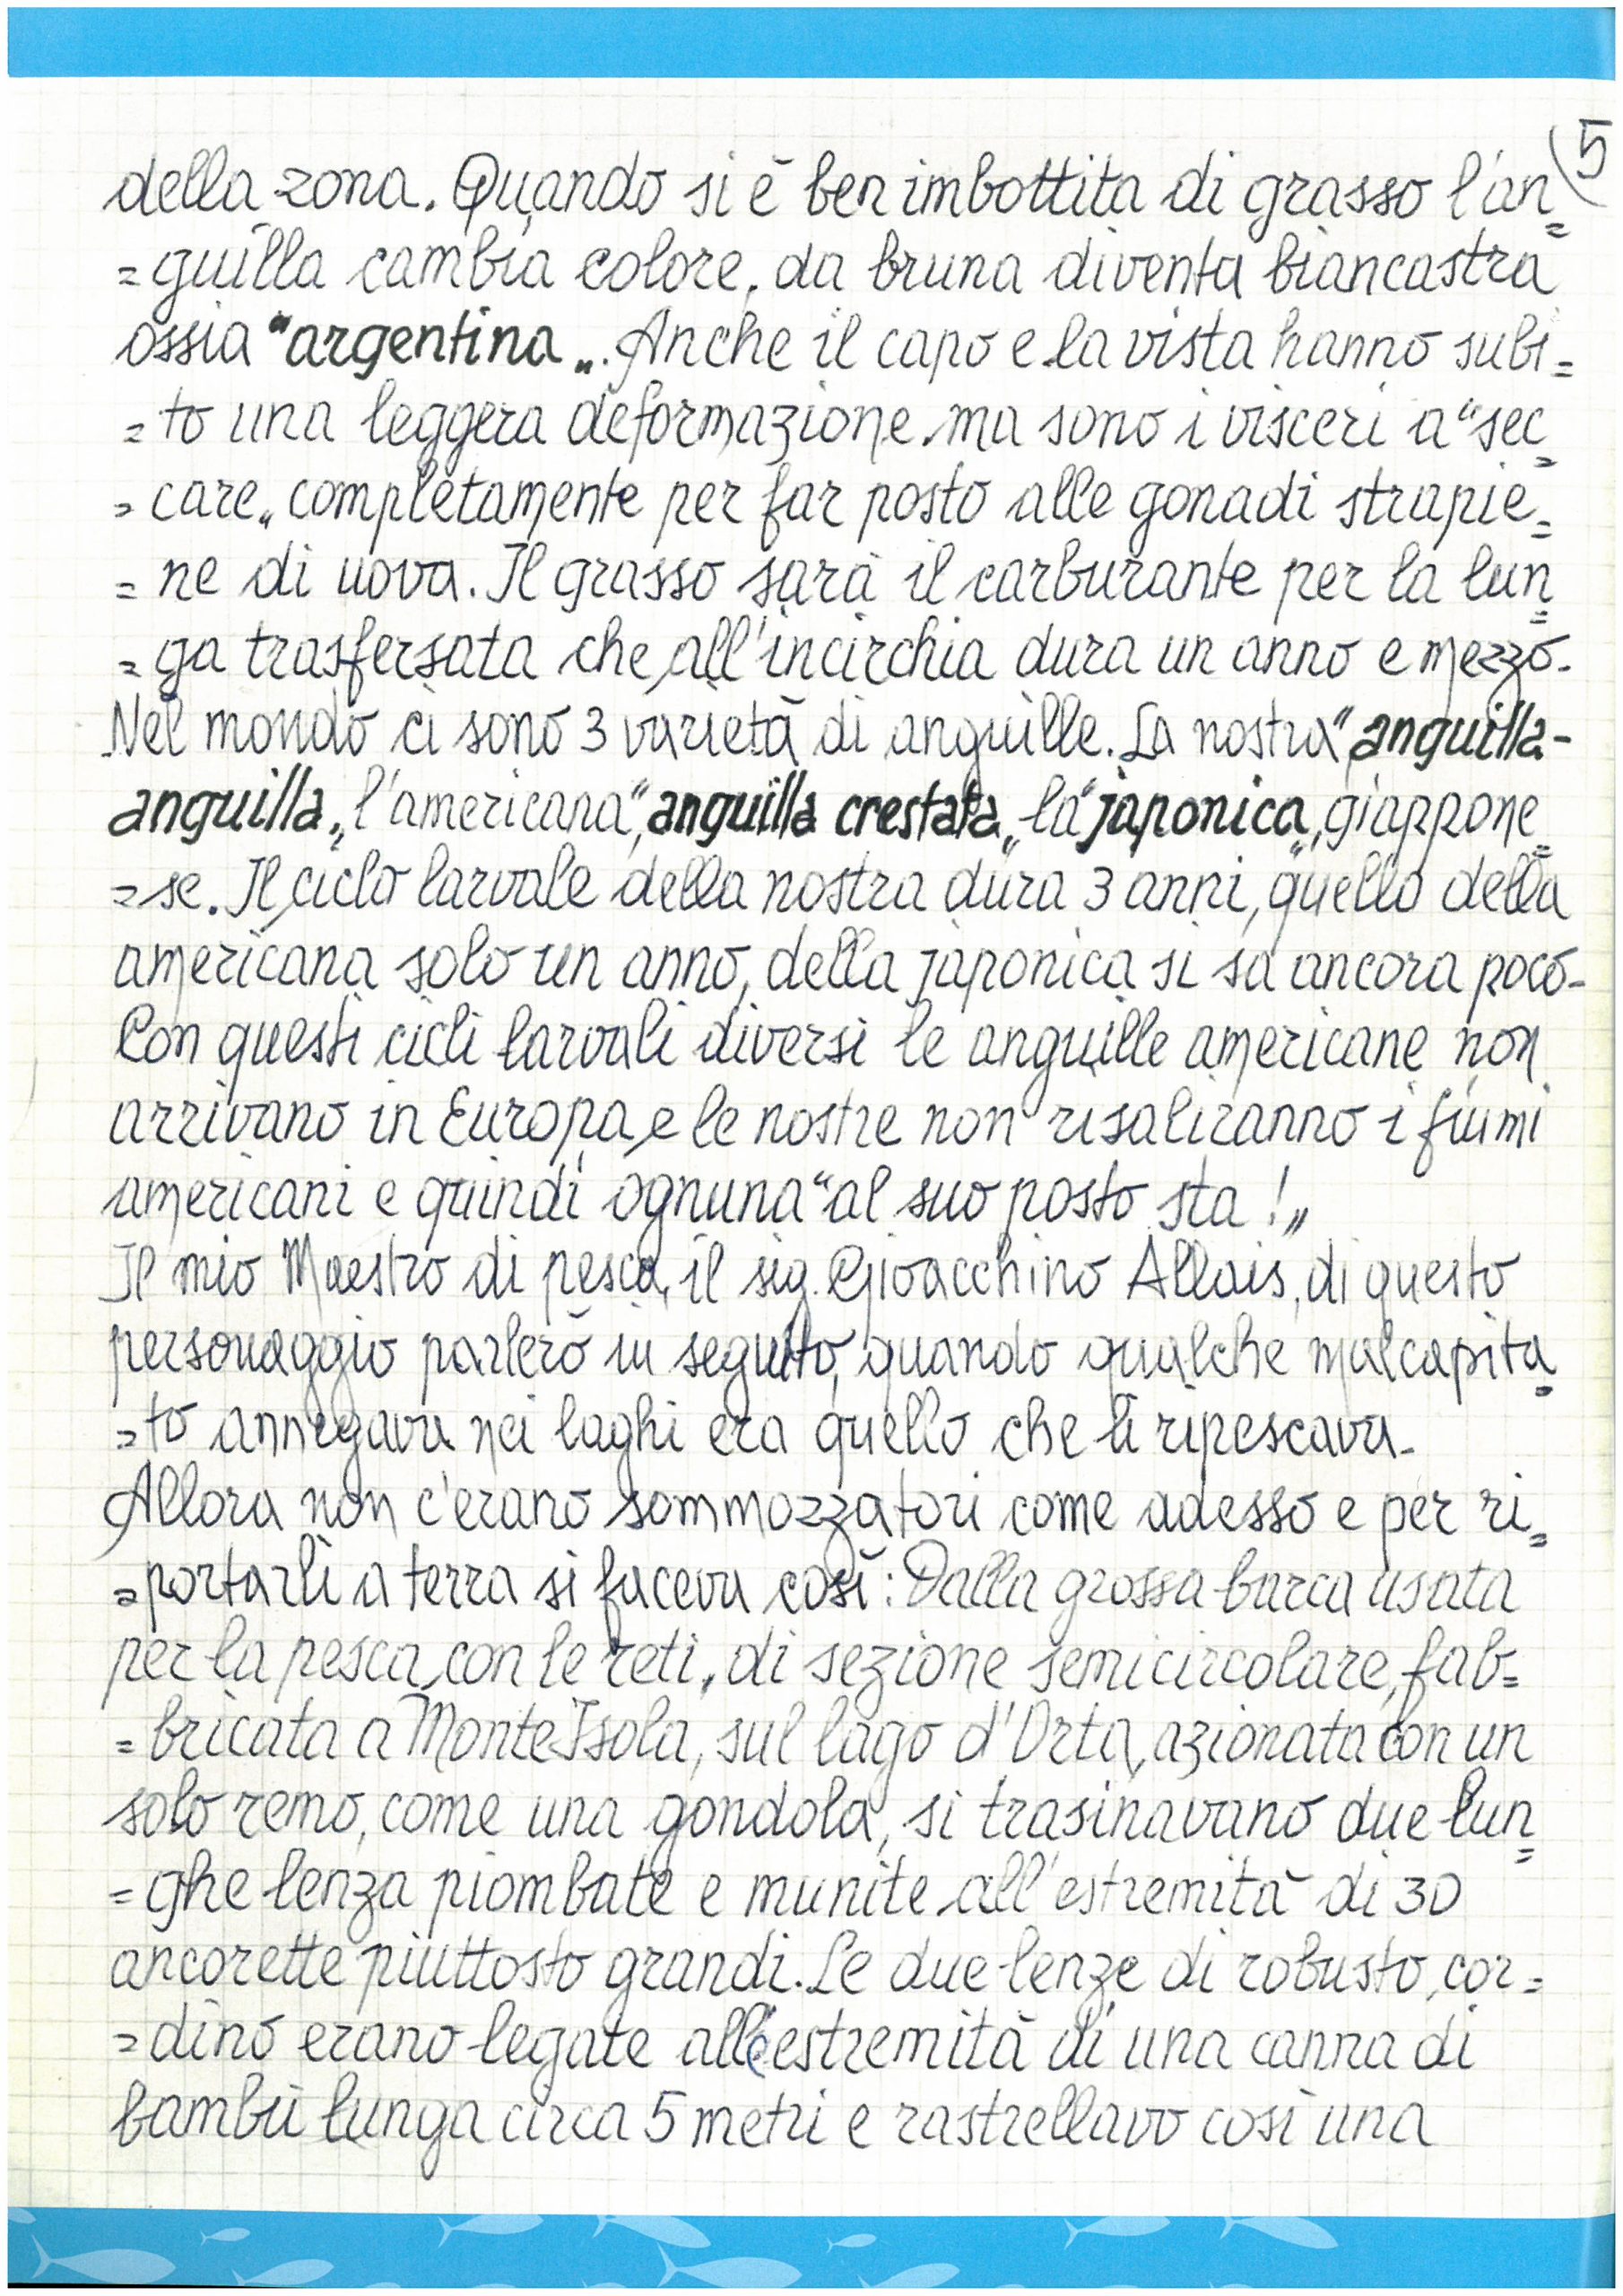 5
della zona. Quando si è ben imbottita di grasso l'an=
=guilla cambia colore, da bruna diventa biancastra
ossia "argentina„. Anche il capo e la vista hanno subi=
=to una leggera deformazione ma sono i visceri a "sec=
=care„ completamente per far posto alle gonadi strapie=
=ne di uova. Il grasso sarà il carburante per la lun=
=ga trasfersata che all'incirchia dura un anno e mezzo.
Nel mondo ci sono 3 varietà di anguille. La nostra "anguilla-
anguilla„, l'americana "anguilla crestata„, la "japonica„, giappone=
=se. Il ciclo larvale della nostra dura 3 anni, quello della
americana solo un anno, della japonica si sa ancora poco-
Con questi cicli larvali diversi le anguille americane non
arrivano in Europa e le nostre non risaliranno i fiumi
americani e quindi ognuna "al suo posto sta!„
Il mio Maestro di pesca, il sig. Gioacchino Allais, di questo
personaggio parlerò in seguito, quando qualche malcapita=
=to annegava nei laghi era quello che li ripescava-
Allora non c'erano sommozzatori come adesso e per ri=
=portarli a terra si faceva così: Dalla grossa barca usata
per la pesca con le reti, di sezione semicircolare, fab=
=bricata a Monte Isola, sul lago d'Orta, azionata con un
solo remo, come una gondola, si trasinavano due lun=
=ghe lenza piombate e munite all'estremità di 30
ancorette piuttosto grandi. Le due lenze di robusto cor=
=dino erano legate alle estremità di una canna di
bambù lunga circa 5 metri e rastrellavo così una